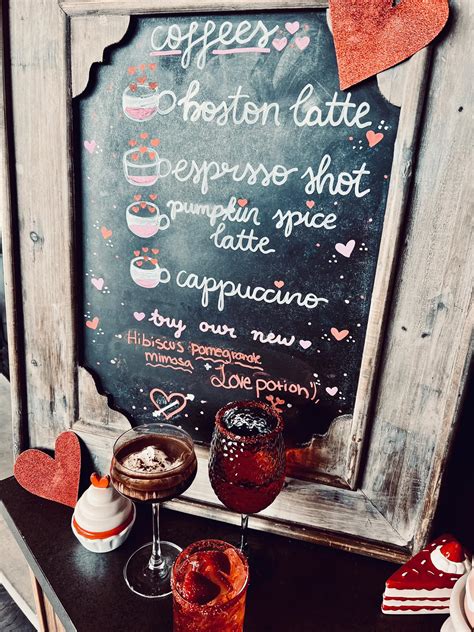 coffees
boston latte
esprsso shot
pumpkin spice
latte
cappuccino
try our new
Hibiscus pomegranate
mimosa + Love potion"